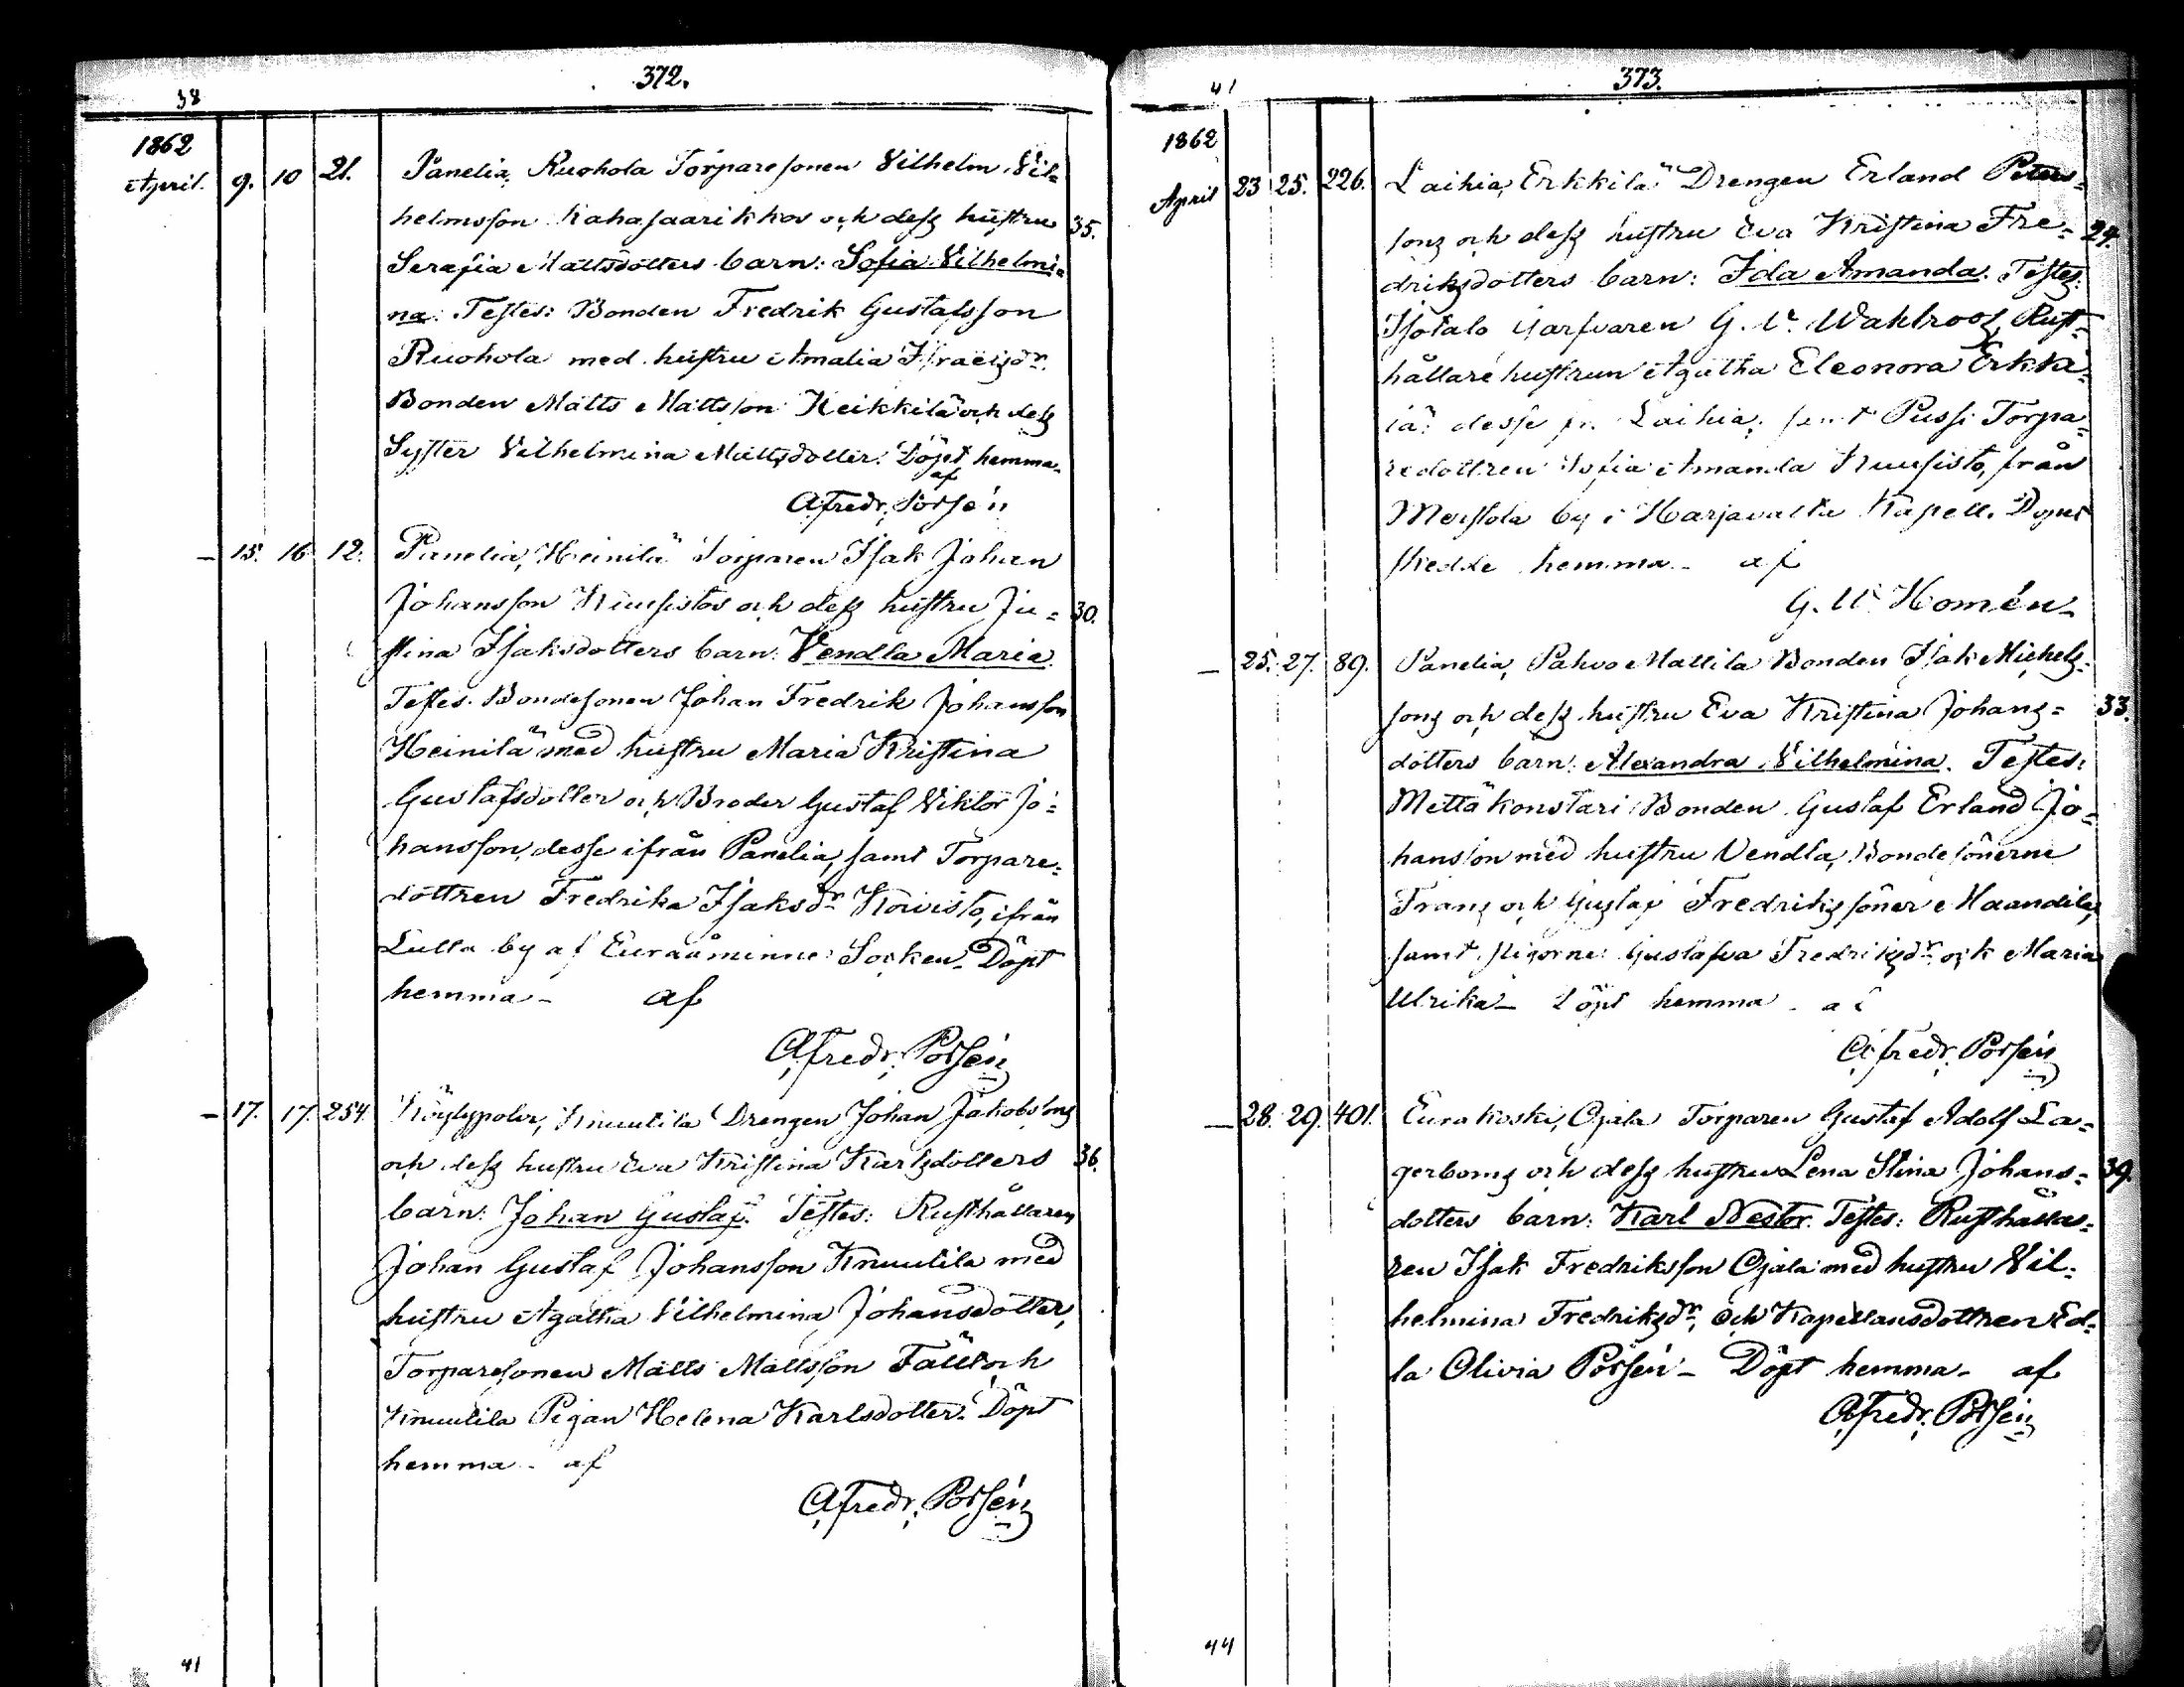 372.
38
1862
April. 9. 10 21. Panelia, Ruohola Torparesonen Vilhelm Vil=
helmsson Kahasaarikkos och dess hustru 35.
Serafia Mattsdotters barn: Sofia Vilhelmi=
na. Testes: Bonden Fredrik Gustafsson
Ruohola med hustru Amalia Israelsdr.
Bonden Matts Mattsson Heikkilä och dess
Syster Vilhelmina Mattsdotter. Döpt hemma
af
Afredr. Porsén
– 15. 16. 12. Panelia, Heinilä Torparen Isak Johan
Johansson Kuusistos och dess hustru Ju= 30.
stina Isaksdotters barn: Vendla Maria.
Testes. Bondesonen Johan Fredrik Johansson
Heinilä med hustru Maria Kristina
Gustafsdotter och Broder Gustaf Viktor Jo=
hansson, desse ifrån Panelia, samt Torpare=
dottren Fredrika Isaksdr Koivisto, ifrån
Lutta by af Euraåminne Socken. Döpt
hemma – af
Afredr. Porsén
– 17. 17. 254. Köylypolvi, Knuutila Drengen Johan Jakobsons
och dess hustru Eva Kristina Karlsdotters 36.
barn: Johan Gustaf. Testes: Rusthållaren
Johan Gustaf Johansson Knuutila med
hustru Agatha Vilhelmina Johansdotter,
Torparesonen Matts Mattsson Fält och
Knuutila Pigan Helena Karlsdotter. Döpt
hemma – af
Afredr. Porsén
41
373.
41
1862
April 23 25. 226. Laihia, Erkkilä Drengen Erland Peters=
sons och dess hustru Eva Kristina Fre= 24.
driksdotters barn: Ida Amanda. Testes:
Isotalo Garfvaren G. V. Wahlroos, Rust=
hållare hustrun Agatha Eleonora Erkki=
lä: desse fr. Laihia, samt Pussi Torpa=
redottren Sofia Amanda Kuusisto, från
Merstola by i Harjavalta Kapell. Dopet
skedde hemma – af
G. W. Homén
– 25. 27. 89. Panelia, Pahvo Mattila Bonden Isak Michels=
sons och dess hustru Eva Kristina Johans= 33.
dotters barn: Alexandra Vilhelmina. Testes:
Mettäkonstari Bonden Gustaf Erland Jo=
hansson med hustru Vendla, Bondesönerne
Frans och Gustaf Fredrikssöner Maandila,
samt pigorne: Gustafva Fredriksdr och Maria
Ulrika – Döpt hemma – af
Afredr. Porsén
– 28. 29. 401. Eurakoski, Ojala Torparen Gustaf Adolf La=
gerboms och dess hustru Lena Stina Johans= 39.
dotters barn: Karl Nestor. Testes: Rusthålla=
ren Isak Fredriksson Ojala med hustru Vil=
helmina Fredriksdr, och Kapellansdottren Ed=
la Olivia Porsén – Döpt hemma – af
Afredr. Porsén
44